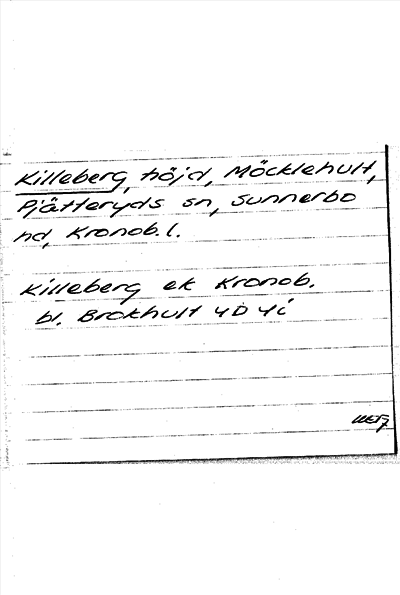 Killeberg, höjd, Möcklehult,
Pjätteryds sn, Sunnerbo
hd, Kronob. l.
Killeberg ek Kronob.
bl. Brokhult 4D 4i